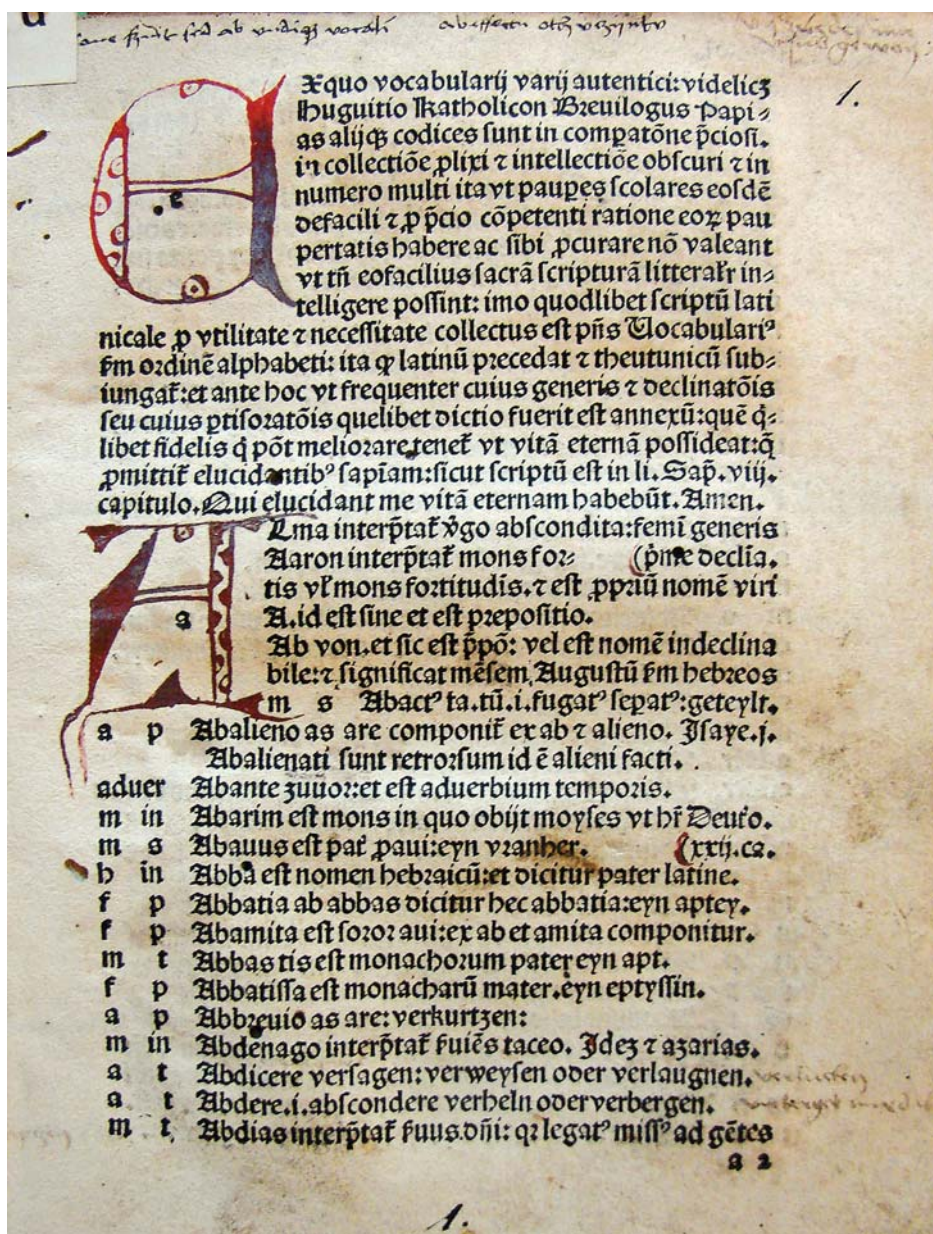 Xquo vocabularij varij autentici: videlicꝫ
Huguitio Katholicon Breuilogus Papi⸗
as alijqꝫ codices sunt in compatõne p̃ciosi.
in collectiõe ꝓlixi ⁊ intellectiõe obscuri ⁊ in
numero multi ita vt pauꝑes scolares eosdẽ
defacili ⁊ ꝓ p̃cio cõpetenti ratione eoꝝ pau
pertatis habere ac sibi ꝓcurare nõ valeant
vt tñ eofacilius sacrã scripturã litteral̃r in⸗
telligere possint: imo quodlibet scriptũ lati
nicale ꝓ vtilitate ⁊ necessitate collectus est pñs Vocabulariꝰ
ẜm ordinẽ alphabeti: ita ꝙ latinũ precedat ⁊ theutunicũ sub⸗
iungat̃: et ante hoc vt frequenter cuius generis ⁊ declinatõis
seu cuius ꝑtisoratõis quelibet dictio fuerit est annexũ: quẽ q̃⸗
libet fidelis q̃ põt meliorare tenet̃ vt vitã eternã possideat: q̃
ꝓmittit̃ elucidantibꝰ sapĩam: sicut scriptũ est in li. Sap̃. viij.
capitulo. Qui elucidant me vitã eternam habebũt. Amen.
Lma interp̃tat̃ v̾go abscondita: femĩ generis
Aaron interp̃tat̃ mons for⸗ (p̃me declĩa.
tis vl̃ mons fortitudĩs. ⁊ est ꝓpriũ nomẽ viri
A. id est sine et est prepositio.
Ab von. et sic est p̃põ: vel est nomẽ indeclina
bile: ⁊ significat mẽsem Augustũ ẜm hebreos
m s Abactꝰ ta. tũ. i. fugatꝰ seꝑatꝰ: geteylt.
a p Abalieno as are componit̃ ex ab ⁊ alieno. Isaye. j.
Abalienati sunt retrorsum id ẽ alieni facti.
aduer Abante zuuor: et est aduerbium temporis.
m in Abarim est mons in quo obijt moyses vt hr̃ Deut̃o.
m s Abauus est pat̃ ꝓaui: eyn vranher. (xxij. ca.
h in Abba est nomen hebraicũ: et dicitur pater latine.
f p Abbatia ab abbas dicitur hec abbatia: eyn aptey.
f p Abamita est soror aui: ex ab et amita componitur.
m t Abbas tis est monachorum pater eyn apt.
f p Abbatissa est monacharũ mater. eyn eptyssin.
a p Abbreuio as are: verkurtzen:
m in Abdenago interp̃tat̃ ẜuiẽs taceo. Ideꝫ ⁊ azarias.
a t Abdicere versagen: verweysen oder verlaugnen.
a t Abdere. i. abscondere verheln oder verbergen.
m t Abdias interp̃tat̃ ẜuus dñi: qꝛ legatꝰ missꝰ ad gẽtes
a 2
1.
e
a
1.